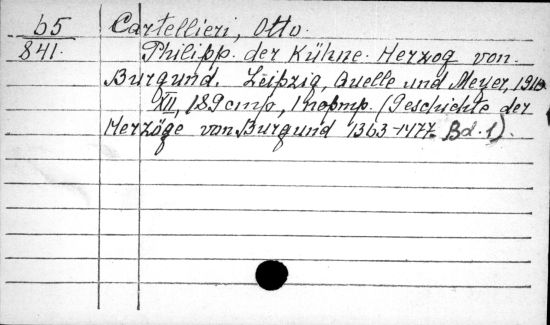 b5 Cartellieri, Otto.
841. Philipp. der Kühne. Herzog von.
Burgund. Leipzig, Quelle und Meyer, 1910
XII, 189 стр, 1 порmp. (Geschichte der
Herzöge von Burgund 1363-1477. Bd. 1).